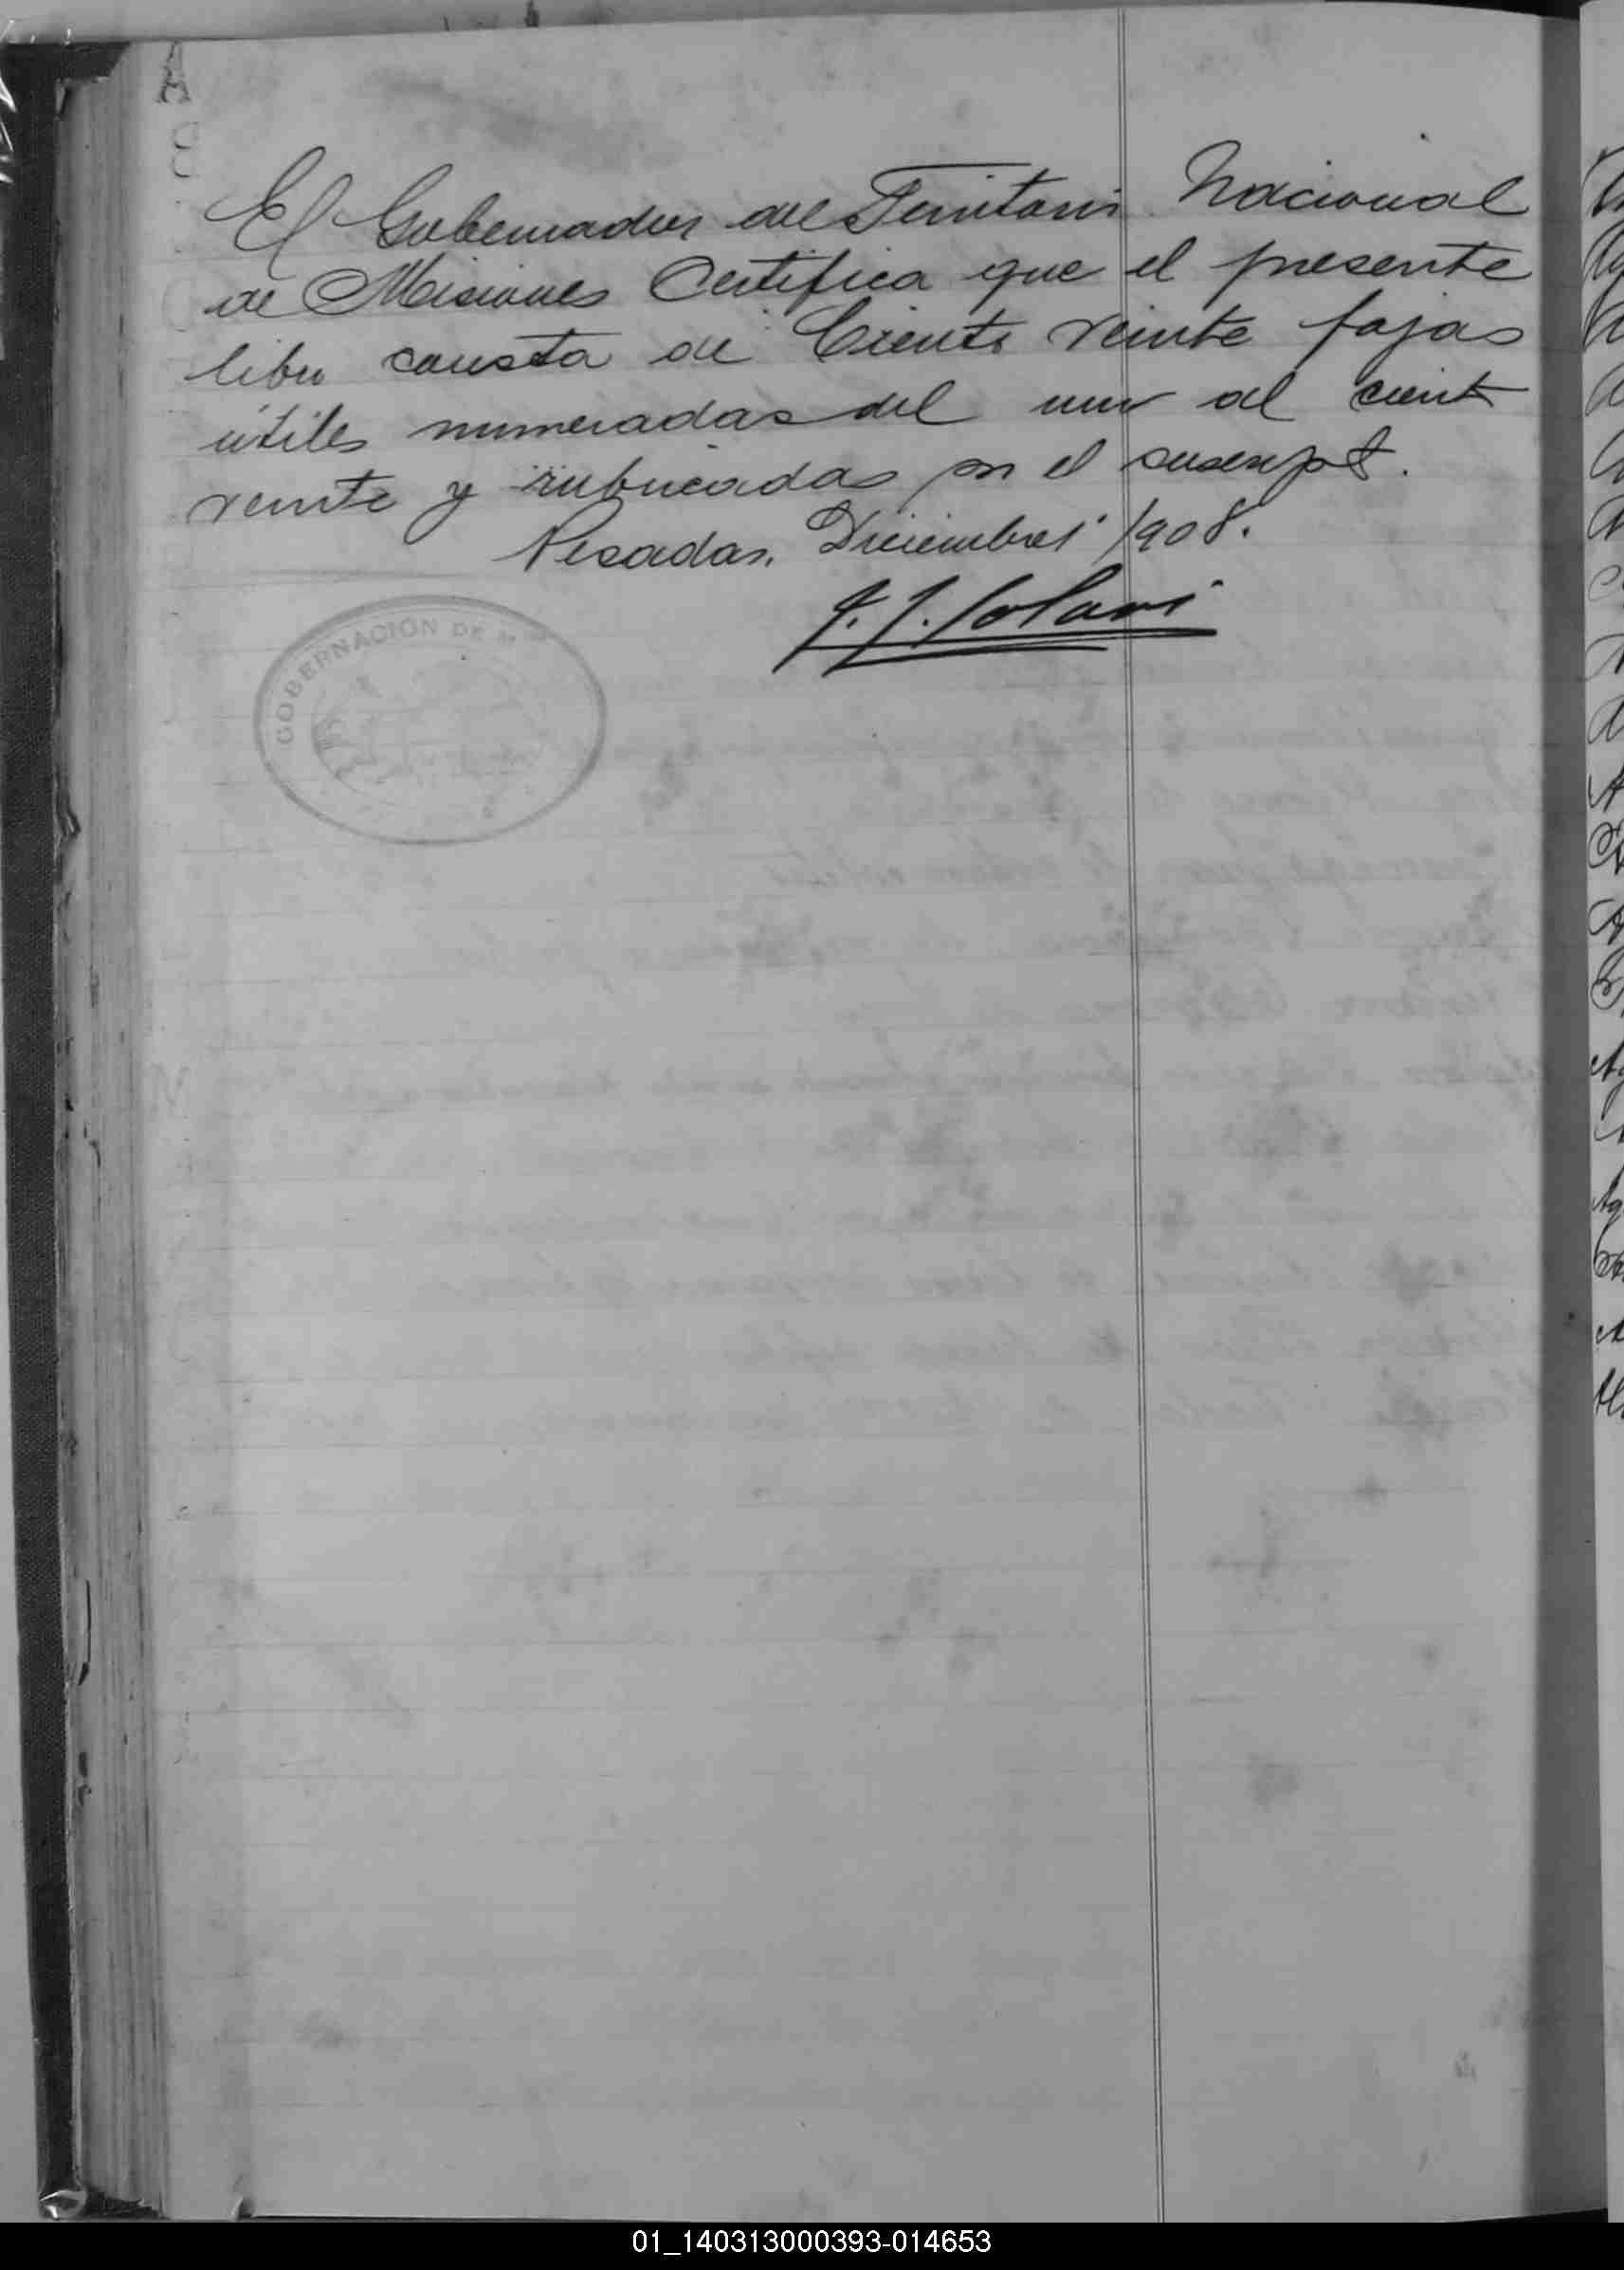 El Gobernador del Territorio Nacional
de Misiones Certifica que el presente
libro consta de Ciento veinte fojas
útiles numeradas del uno al ciento
veinte y rubricadas por el suscripto.
Posadas, Diciembre 1908.
J. J. Lanusse
GOBERNACIÓN DE
01_140313000393-014653